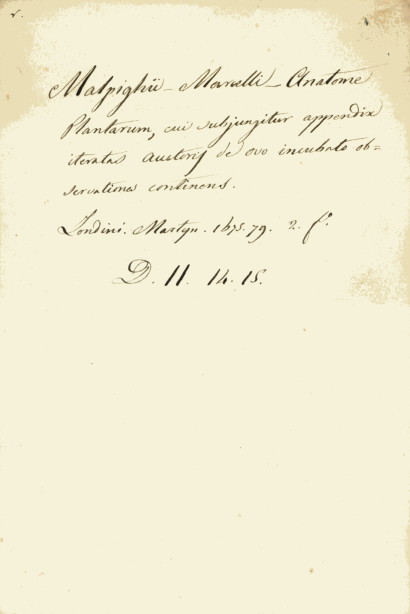 Malpighii - Marcelli - Anatome
Plantarum, cui subjungitur appendix
iteratas auctoris de ovo incubato ob=
servationes continens.
Londini. Martyn. 1675.79. 2. fº.
D. 11. 14. 15.